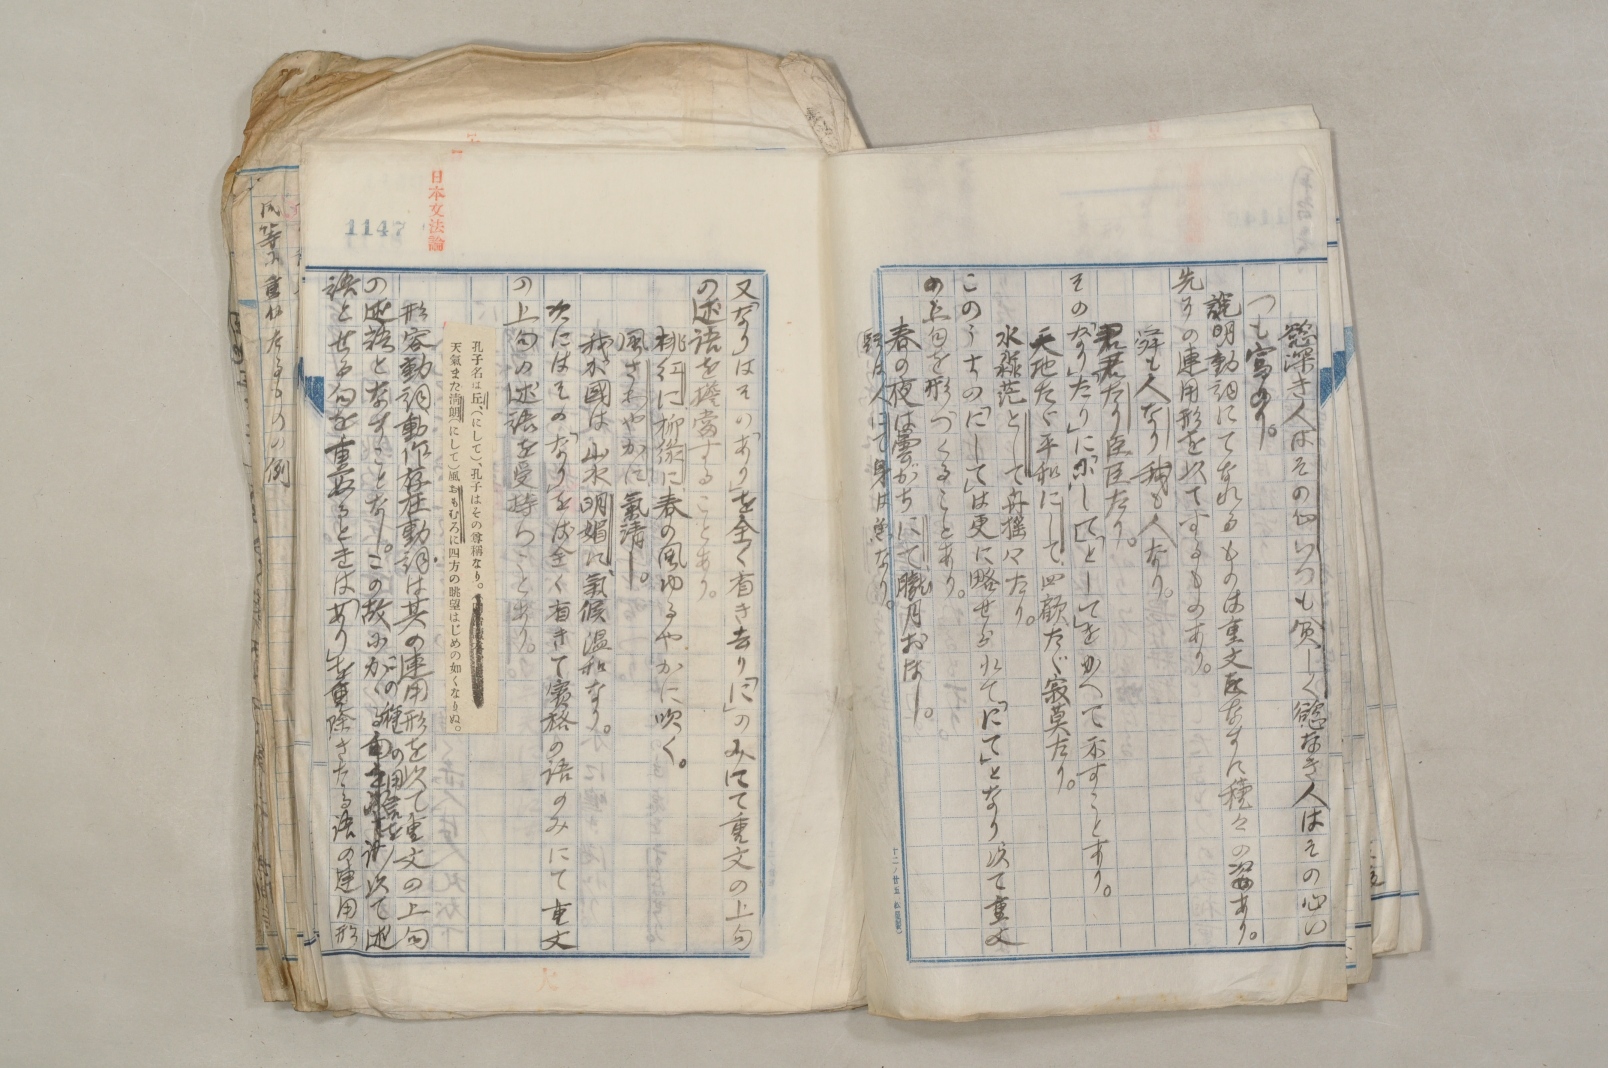 慾深き人はその心いつも貧しく慾なき人はその心い
つも富めり。
説明動詞にてなれるものは重文をなすに種々の姿あり。
先づの連用形を以てするものあり。
舜も人なり我も人なり。
君君たり臣臣たり。
その「なり」「たり」に「して」「として」をかへて示すことあり。
天地たゞ平和にして四顧たゞ寂莫たり。
水淼茫として舟揺々たり。
このうちの「にして」は更に略せられて「にて」となり以て重文
の上句を形づくることあり。
春の夜は曇がちにて朧月おほし。
又「なり」はその「あり」を全く省き去り「に」のみにて重文の上句
の述語を擔當することあり。
桃紅に柳緑に春の風ゆるやかに吹く。
風さわやかに氣清し。
我が國は山水明媚に氣候温和なり。
次にはその「なり」をば全く省きて賓格の語のみにて重文
の上句の述語を受持つことあり。
孔子名は丘、(にして)、孔子はその尊稱なり。
天氣また淸朗(にして)風おもむろに四方の眺望はじめの如くなりぬ。
形容動詞動作存在動詞は其の連用形を以て重文の上句
の述語となすことなし。この故に
語とせる句を重ぬるときは「あり」を除きたる語の連用形
日本文法論
1147